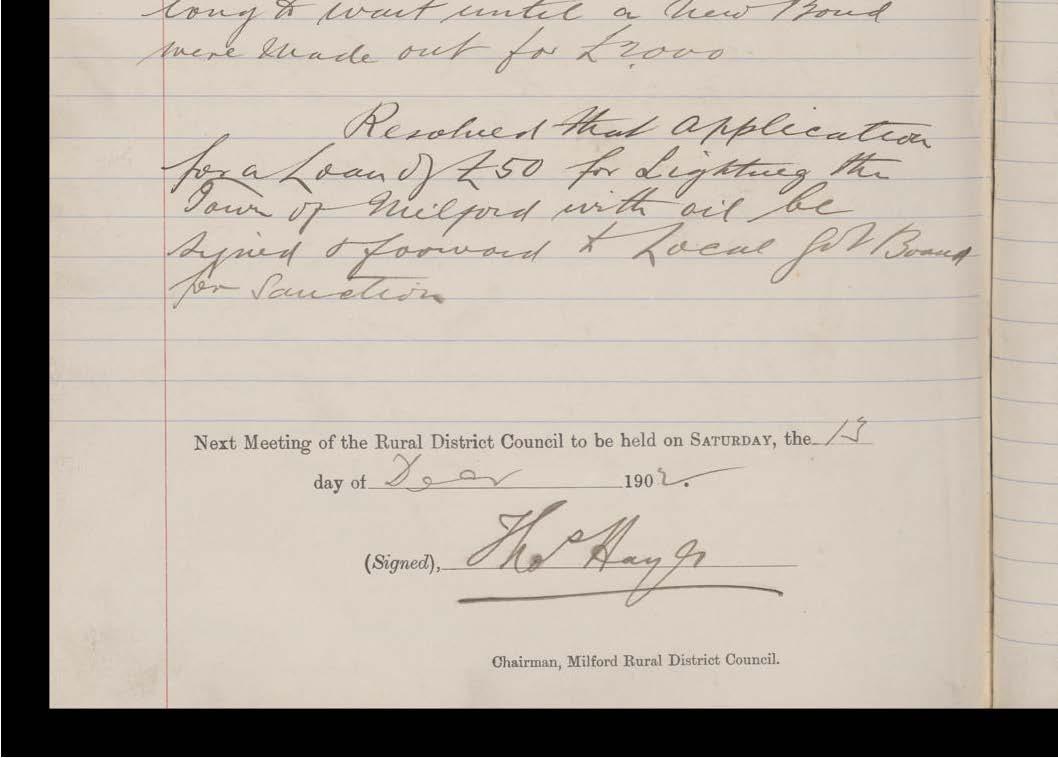 long to wait until a New Bond
were made out for £2000
Resolved that application
for a Loan of £50 for Lighting the
Town of Milford with oil be
signed & forward to Local Govt Board
for Sanction
Next Meeting of the Rural District Council to be held on SATURDAY, the 13
day of Decr 1902.
(Signed), Thos Hay Jr
Chairman, Milford Rural District Council.